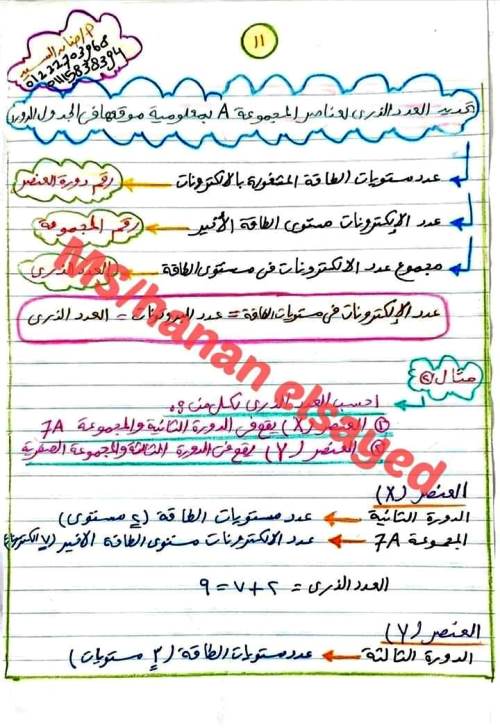 ١١
م/حنان السيد
01222703968
01115838394
تحديد العدد الذرى لعناصر المجموعة A بمعلومية موقعها فى الجدول الدورى
رقم دورة العنصر ← عدد مستويات الطاقة المشغولة بالالكترونات
رقم المجموعة ← عدد الإلكترونات مستوى الطاقة الأخير
العدد الذرى ← مجموع عدد الالكترونات فى مستوى الطاقة
عدد الإلكترونات فى مستويات الطاقة = عدد البروتونات = العدد الذرى
مثال
احسب العدد الذرى لكل من :
① العنصر (X) يقع فى الدورة الثانية والمجموعة 7A
② العنصر (Y) يقع فى الدورة الثالثة والمجموعة الصفرية
العنصر (X)
الدورة الثانية ← عدد مستويات الطاقة (٢ مستوى)
المجموعة 7A ← عدد الالكترونات مستوى الطاقة الأخير (٧ الكترونات)
العدد الذرى = ٢+٧ = ٩
العنصر (Y)
الدورة الثالثة ← عدد مستويات الطاقة (٣ مستويات)
MS/hanan elsayed